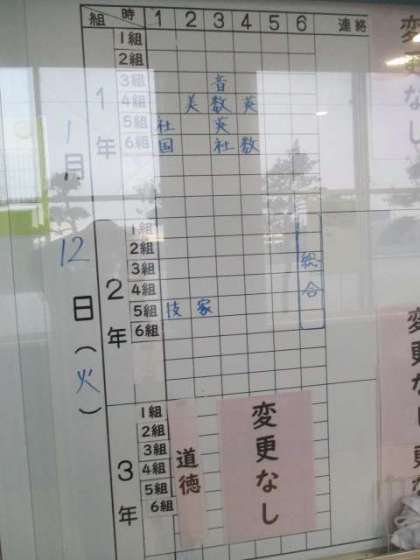 組 時 1 2 3 4 5 6 連絡
1月12日(火)
1年
1組
2組
3組 音
4組 美 数 英
5組 社 英
6組 国 社 数
2年
1組
2組
3組
4組
5組 技 家
6組
総合
3年
1組
2組
3組
4組
5組
6組
道徳
変更なし
変更なし
変更なし